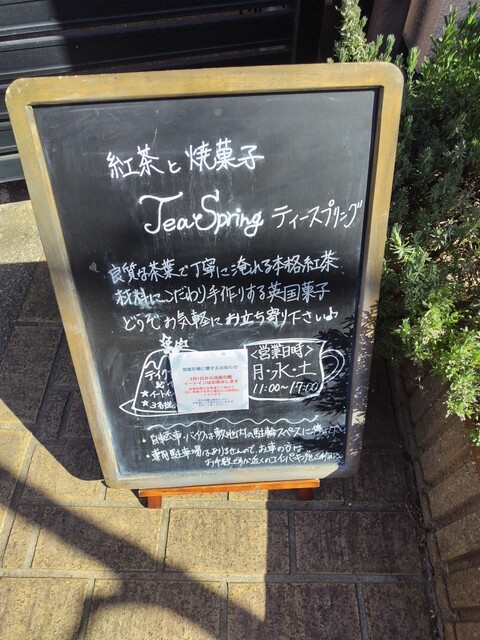 紅茶と焼菓子
Tea Spring ティースプリング
良質な茶葉で丁寧に淹れる本格紅茶
材料にこだわり手作りする英国菓子
どうぞお気軽にお立ち寄り下さい
<営業日時>
月・水・土
11:00～17:00
テイク
★イートイン
営業形態に関するお知らせ
イートインはお休みします
・自転車・バイクは敷地内の駐輪スペースに
・専用駐車場はありませんので、お車の方は
お手数ですが近くのコインパーキングを